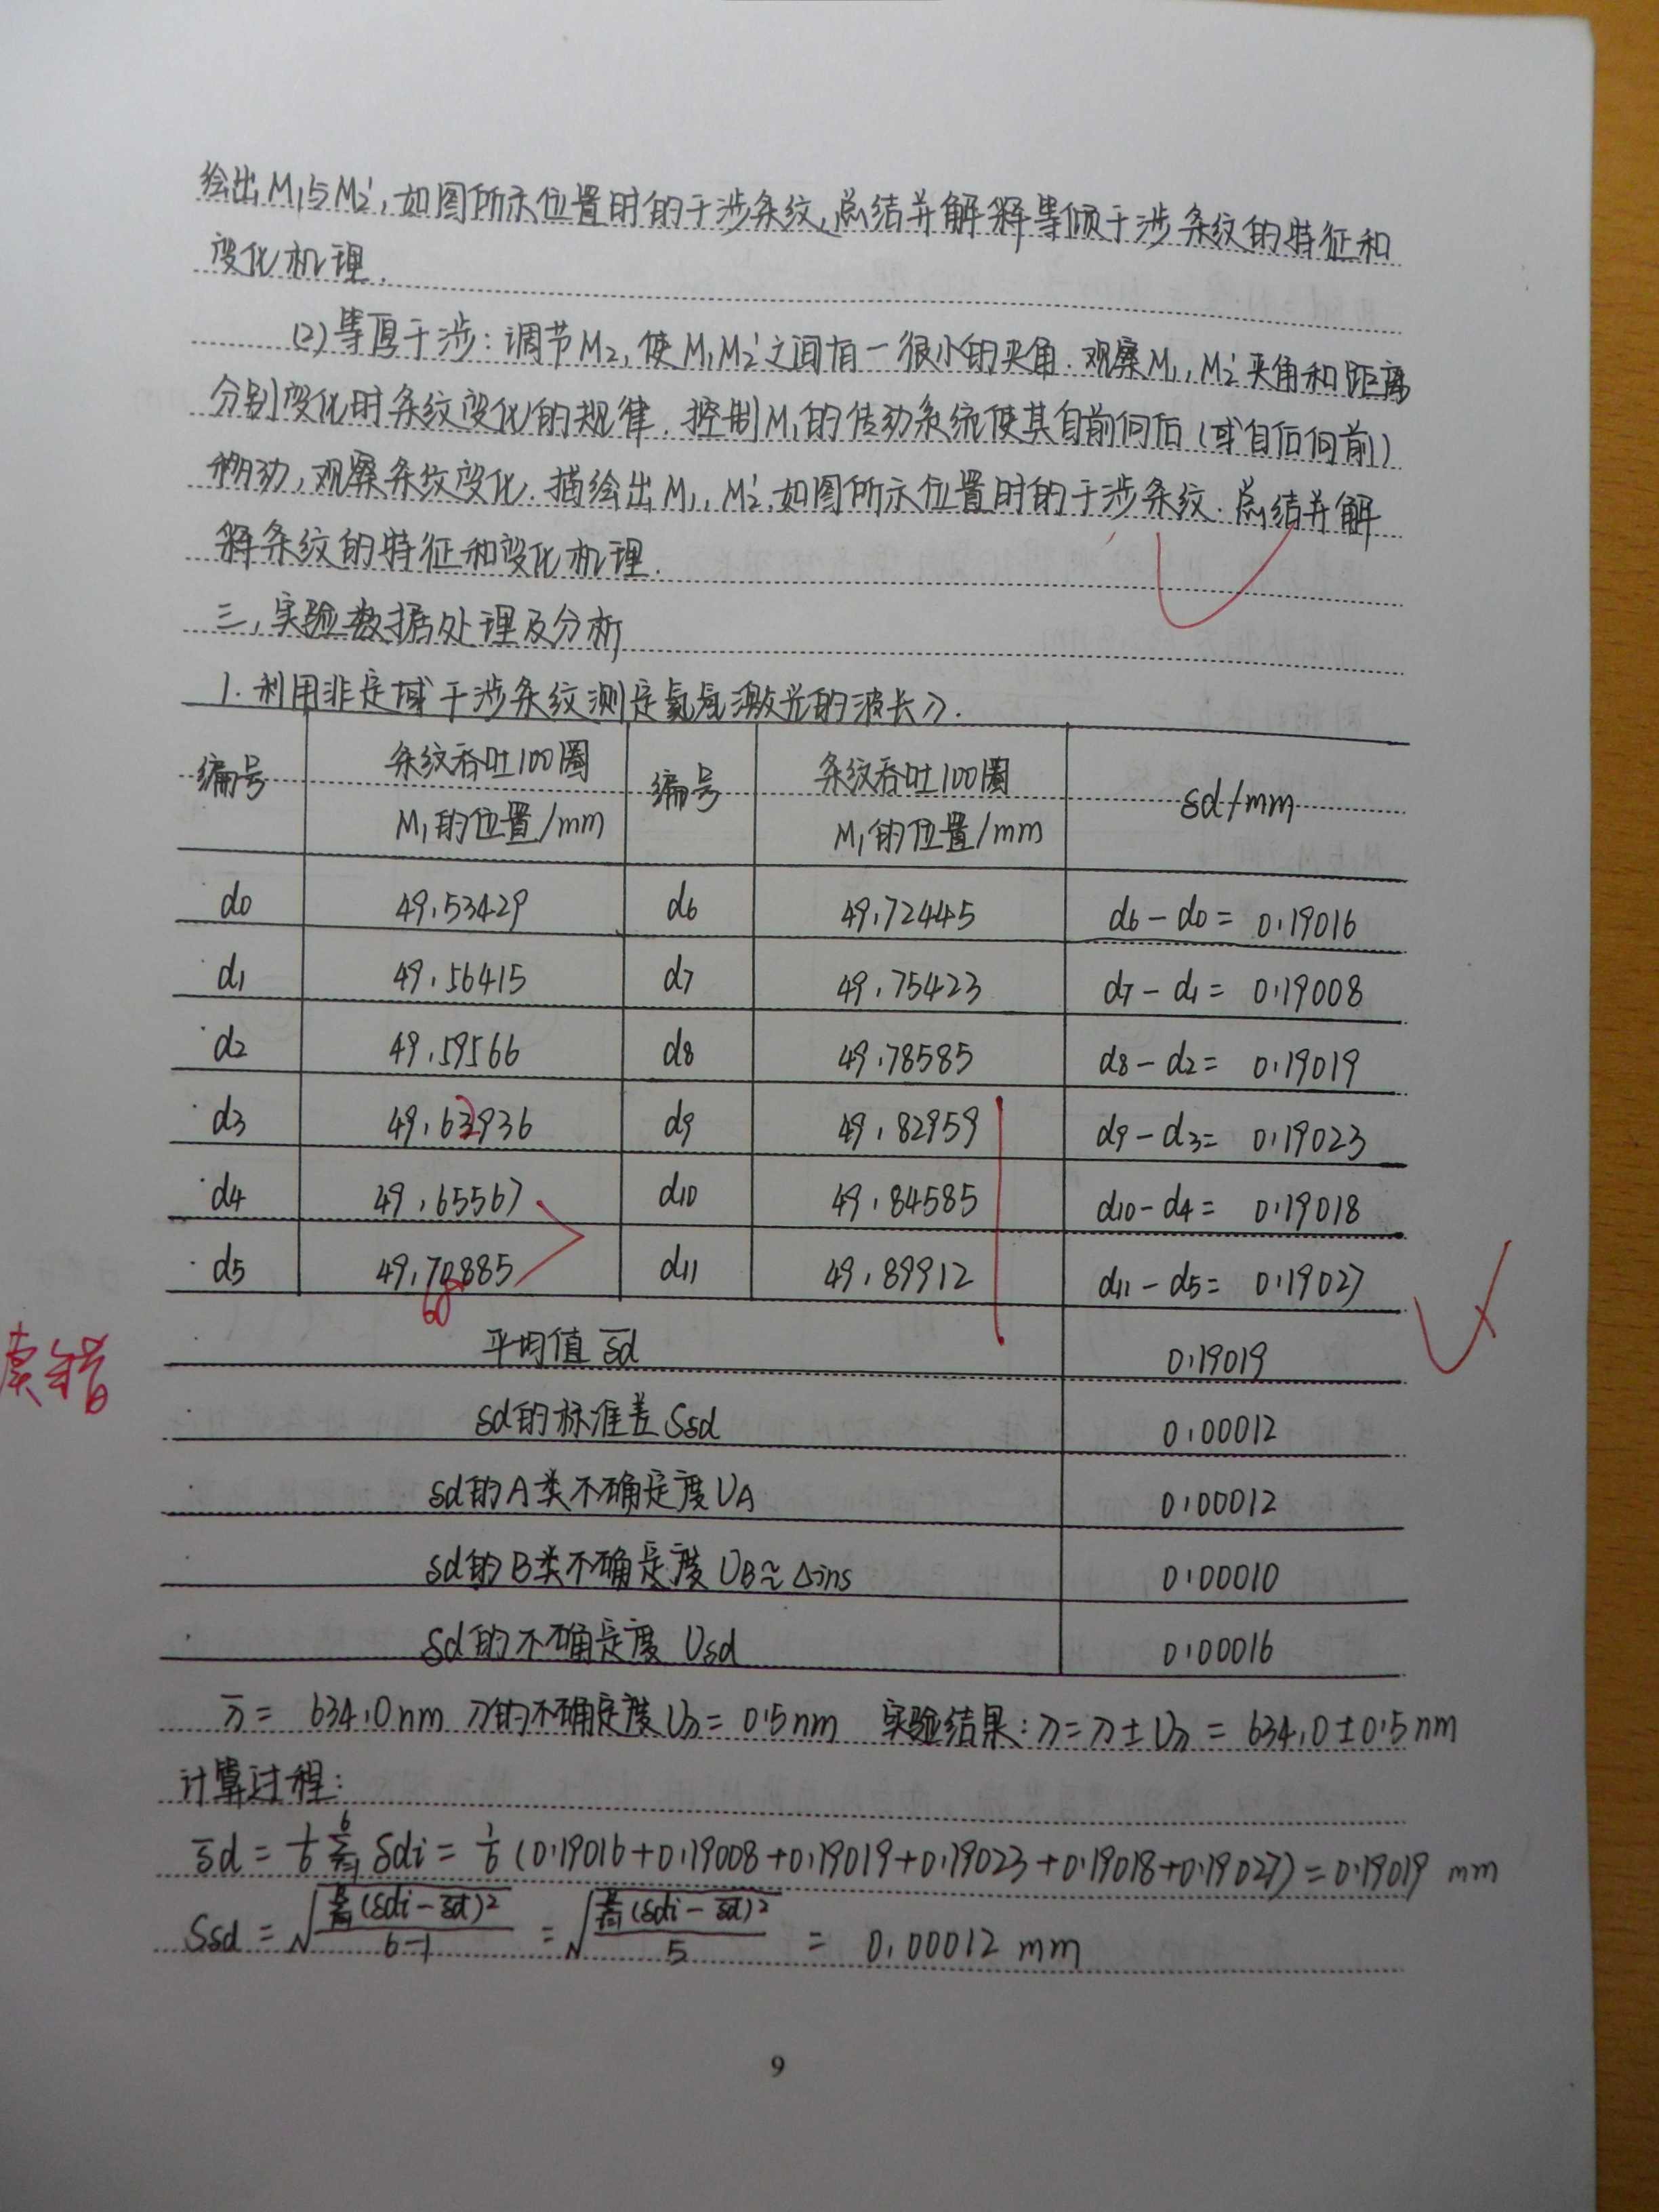 绘出M₁与M₂′,如图所示位置时的干涉条纹,总结并解释等倾干涉条纹的特征和
变化机理.
(2)等厚干涉:调节M₂,使M₁M₂′之间有一很小的夹角.观察M₁,M₂′夹角和距离
分别变化时条纹变化的规律.控制M₁的传动系统使其自前向后(或自后向前)
移动,观察条纹变化.描绘出M₁,M₂′如图所示位置时的干涉条纹.总结并解
释条纹的特征和变化机理.
三,实验数据处理及分析
1.利用非定域干涉条纹测定氦氖激光的波长λ.
编号 条纹吞吐100圈 编号 条纹吞吐100圈 δd/mm
M₁的位置/mm M₁的位置/mm
d0 49.53429 d6 49.72445 d6-d0= 0.19016
d1 49.56415 d7 49.75423 d7-d1= 0.19008
d2 49.59566 d8 49.78585 d8-d2= 0.19019
d3 49.63936 d9 49.82959 d9-d3= 0.19023
d4 49.65567 d10 49.84585 d10-d4= 0.19018
d5 49.70885 d11 49.89912 d11-d5= 0.19027
68
读错
平均值 δd̄ 0.19019
δd的标准差Sδd 0.00012
δd的A类不确定度UA 0.00012
δd的B类不确定度UB≈Δins 0.00010
δd的不确定度 Uδd 0.00016
λ̄= 634.0nm λ的不确定度Uλ= 0.5nm 实验结果:λ=λ±Uλ = 634.0±0.5nm
计算过程:
δ̄d = 1/6 ∑⁶ᵢ₌₁ δdi = 1/6 (0.19016+0.19008+0.19019+0.19023+0.19018+0.19027)=0.19019 mm
Sδd = √(∑⁶ᵢ₌₁(δdi-δ̄d)²/6-1) = √(∑⁶ᵢ₌₁(δdi-δ̄d)²/5) = 0.00012 mm
9